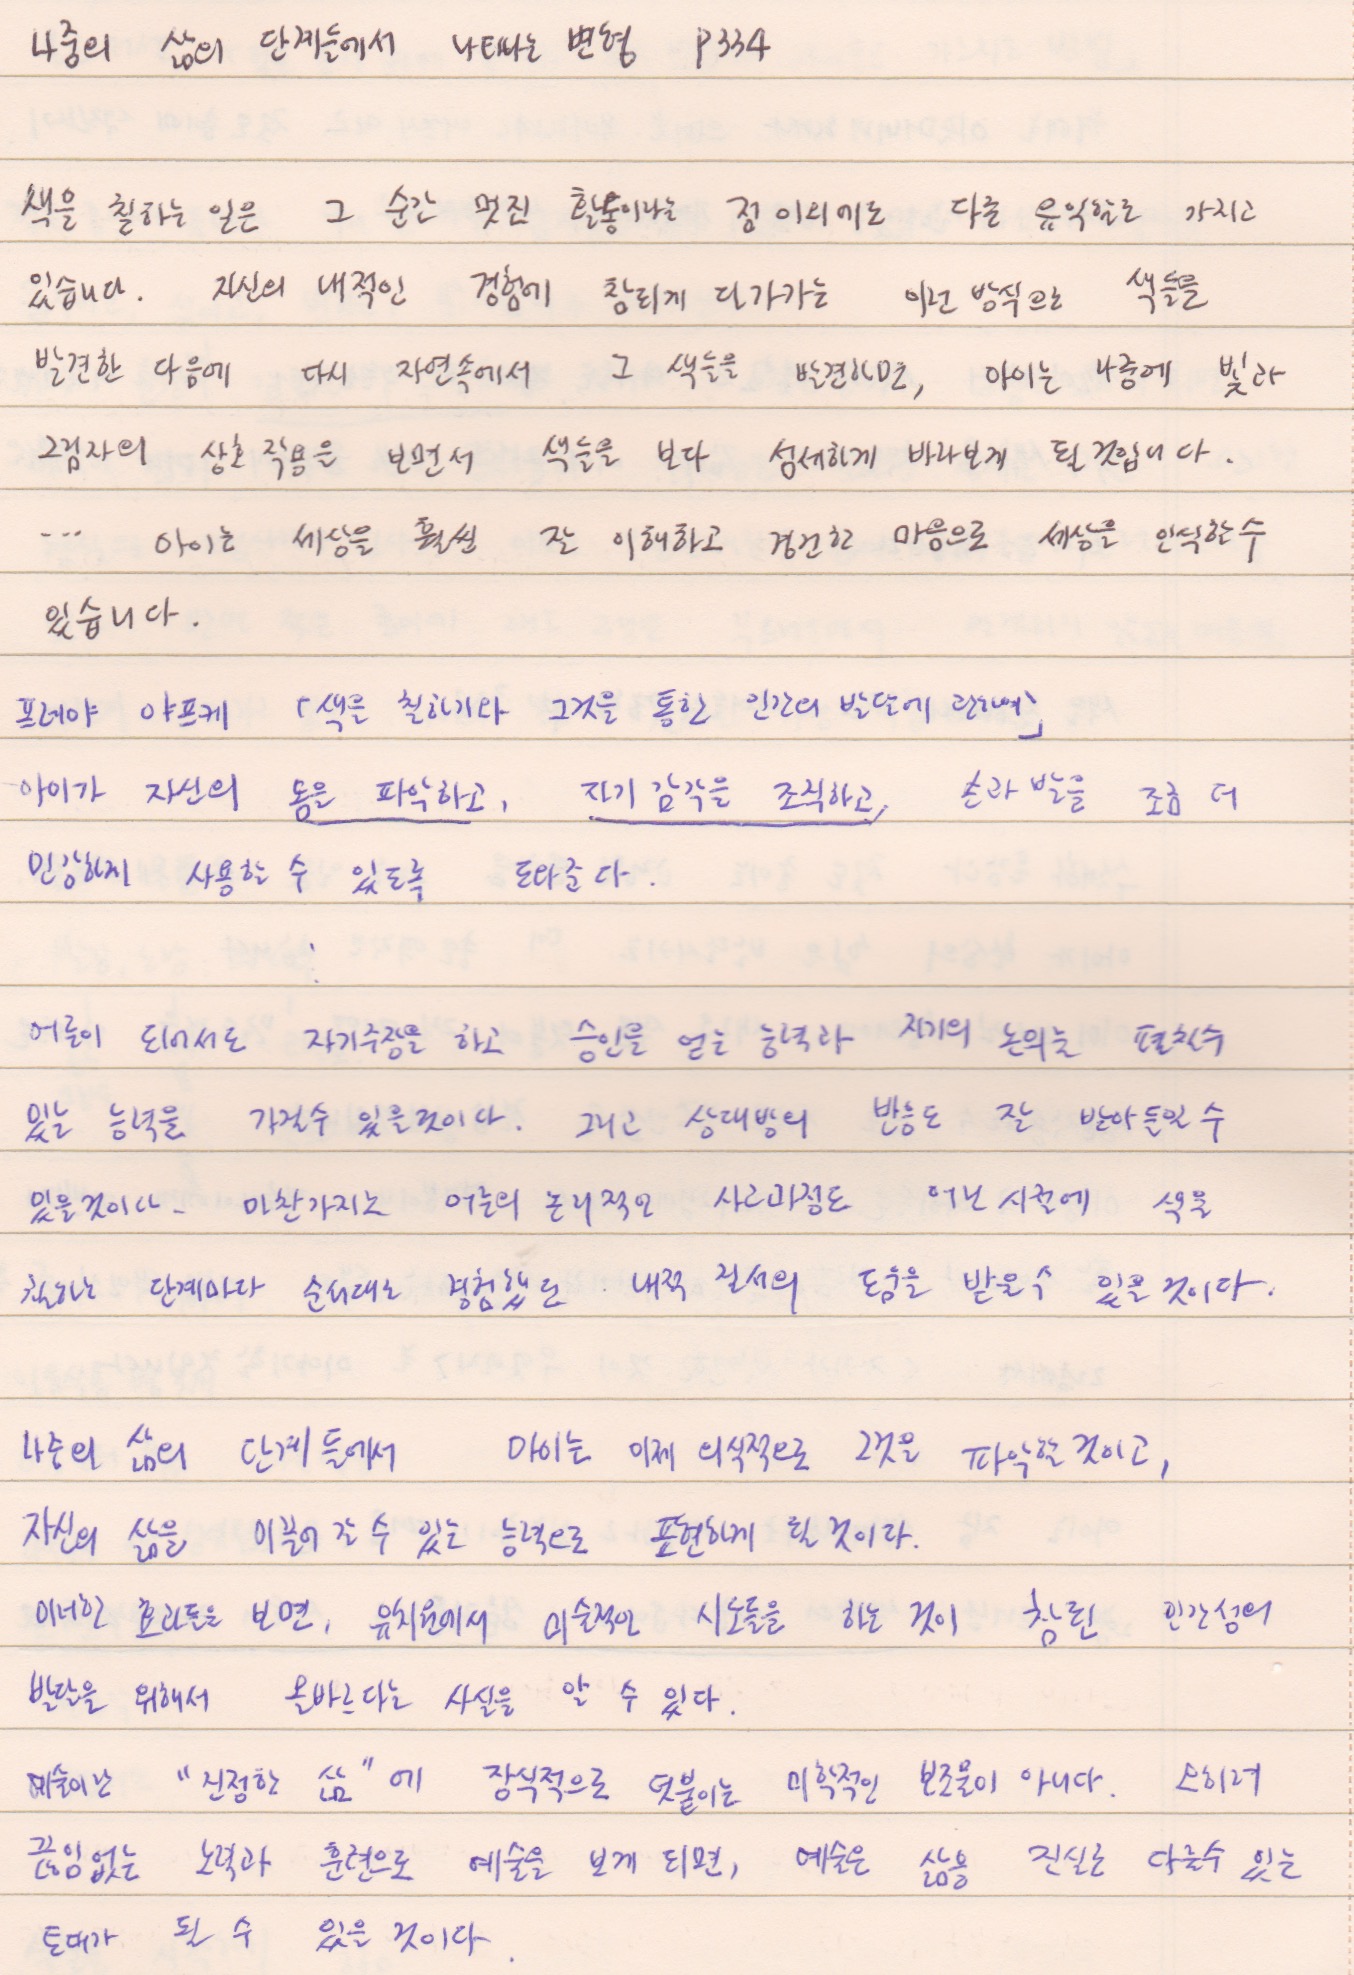 나중의 삶의 단계들에서 나타나는 변형 P334
색을 칠하는 일은 그 순간 멋진 활동이라는 점 이외에도 다른 유익함도 가지고
있습니다. 자신의 내적인 경험에 참되게 다가가는 이런 방식으로 색들을
발견한 다음에 다시 자연속에서 그 색들을 발견하면, 아이는 나중에 빛과
그림자의 상호작용을 보면서 색들을 보다 섬세하게 바라보게 될것입니다.
... 아이는 세상을 훨씬 잘 이해하고 경건한 마음으로 세상을 인식할수
있습니다.
프레야 야프케 「색을 칠하기와 그것을 통한 인간의 발달에 관하여」
아이가 자신의 몸을 파악하고, 자기 감각을 조직하고, 손과 발을 조금 더
민감하게 사용할 수 있도록 도와준다.
:
어른이 되어서도 자기주장을 하고 승인을 얻는 능력과 자기의 논의를 펼칠수
있는 능력을 가질수 있을것이다. 그리고 상대방의 반응도 잘 받아들일 수
있을것이다. 마찬가지로 어른의 논리적인 사고과정도 어린 시절에 색을
칠하는 단계마다 순서대로 경험했던 내적 질서의 도움을 받을수 있을 것이다.
나중의 삶의 단계들에서 아이는 이제 의식적으로 그것을 파악할 것이고,
자신의 삶을 이끌어 갈 수 있는 능력으로 표현하게 될 것이다.
이러한 효과들을 보면, 유치원에서 미술적인 시도들을 하는 것이 참된 인간성의
발달을 위해서 올바르다는 사실을 알 수 있다.
예술이란 "진정한 삶"에 장식적으로 덧붙이는 미학적인 보조물이 아니다. 오히려
끊임없는 노력과 훈련으로 예술을 보게 되면, 예술은 삶을 진실로 다룰수 있는
토대가 될 수 있을 것이다.